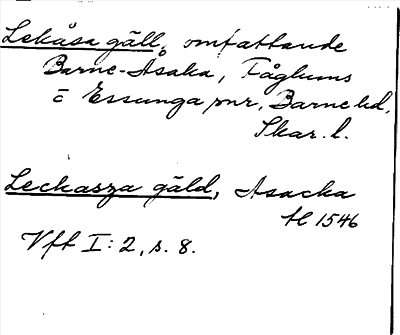 Lekåsa gäll, omfattande
Barne-Åsaka, Fåglums
o Essunga pnr, Barne hd,
Skar. l.
Leckasza gäld, Asacka
hl 1546
Vft I:2, s. 8.